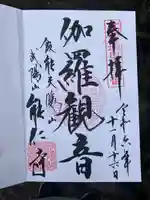 奉拝
令和六年
十一月十六日
伽羅観音
飯能天覧山
武陽山
能仁寺